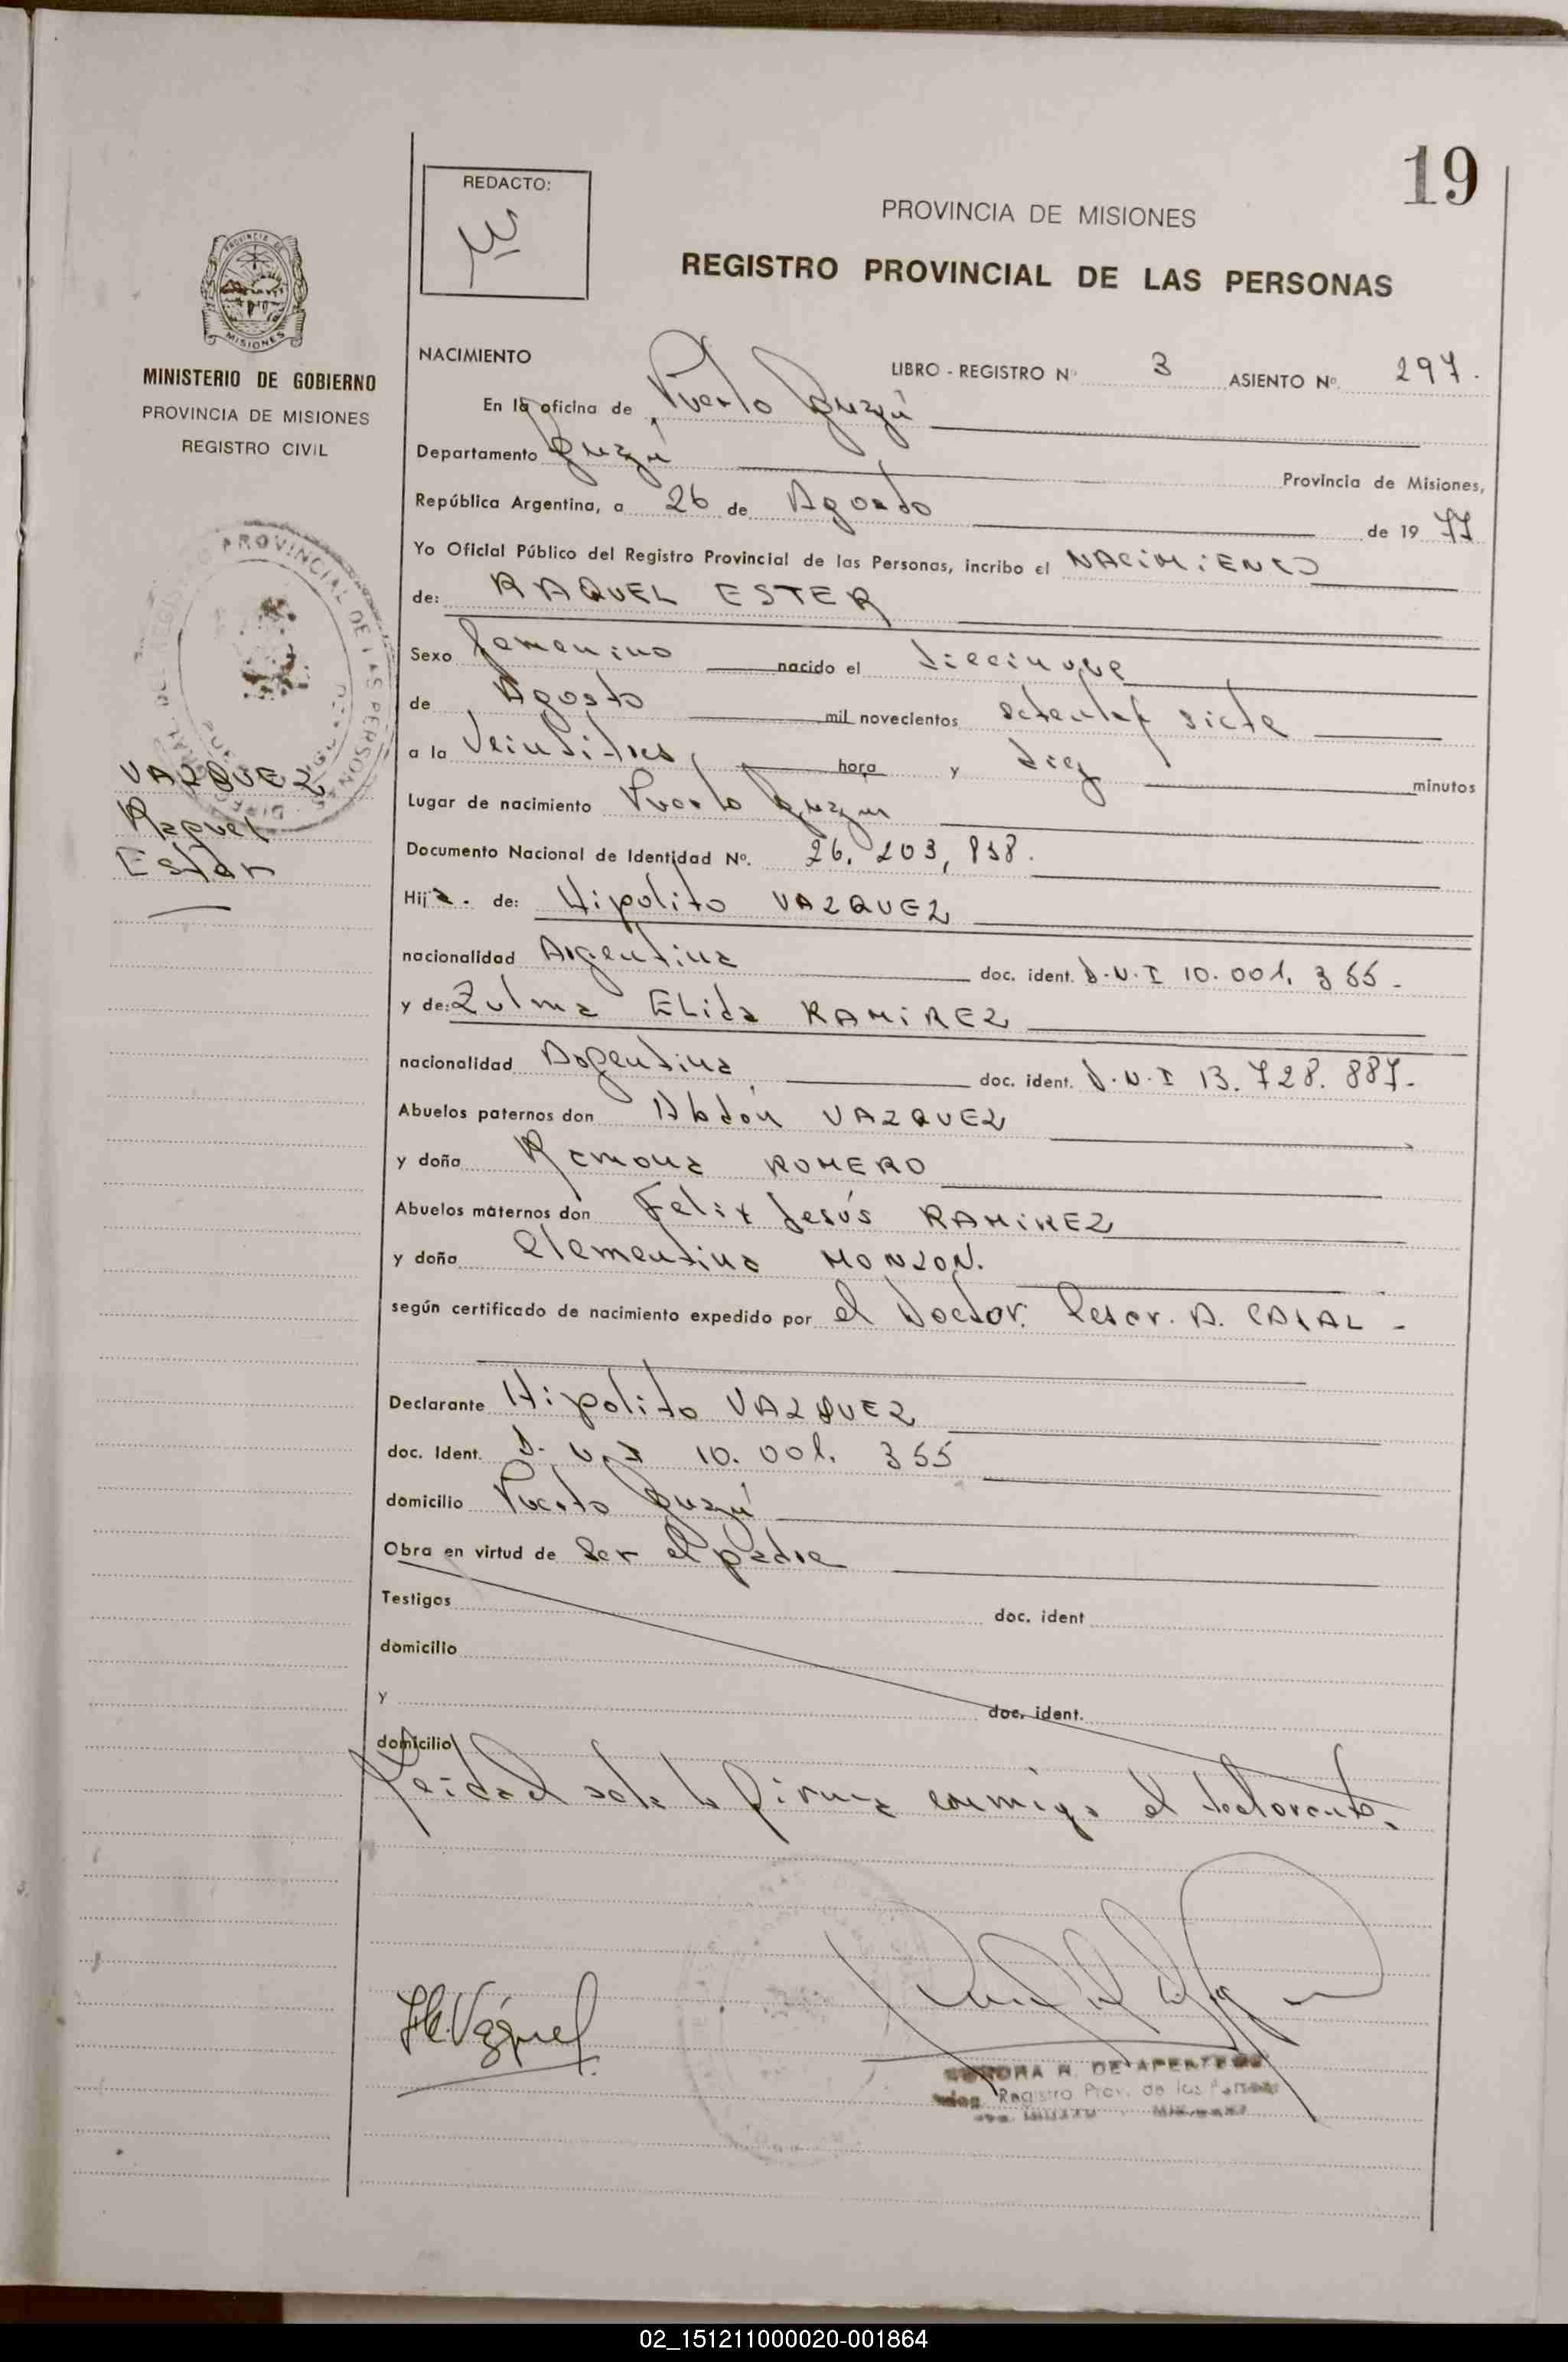 19
REDACTO:
PROVINCIA DE MISIONES
REGISTRO PROVINCIAL DE LAS PERSONAS
PROVINCIA DE
MISIONES
MINISTERIO DE GOBIERNO
PROVINCIA DE MISIONES
REGISTRO CIVIL
NACIMIENTO
LIBRO - REGISTRO Nº 3 ASIENTO Nº 297.
En la oficina de Puerto Iguazú
Departamento Iguazú Provincia de Misiones,
República Argentina, a 26 de Agosto de 1977
Yo Oficial Público del Registro Provincial de las Personas, incribo el NACIMIENTO
de: RAQUEL ESTER
Sexo femenino nacido el diecinueve
de Agosto mil novecientos setenta y siete
a la Veintitres hora y diez minutos
Lugar de nacimiento Puerto Iguazú
VAZQUEZ
Raquel
Ester
Documento Nacional de Identidad Nº. 26.203,858.
Hija. de: Hipolito VAZQUEZ
nacionalidad Argentina doc. ident. D.N.I 10.001.355-
y de: Zulma Elida RAMIREZ
nacionalidad Argentina doc. ident. D.N.I 13.728.887-
Abuelos paternos don Abdón VAZQUEZ
y doña Ramona ROMERO
Abuelos maternos don Felix Jesús RAMIREZ
y doña Clementina MONZON.
según certificado de nacimiento expedido por el Doctor. A. CASAL -
Declarante Hipolito VAZQUEZ
doc. Ident. D.N.I 10.001.355
domicilio Puerto Iguazú
Obra en virtud de Ser el padre
Testigos doc. ident
domicilio
y doc. ident.
domicilio
Leida el acta la firma conmigo el declarante.
H. Vázquez
Registro Prov. de las Personas
02_151211000020-001864